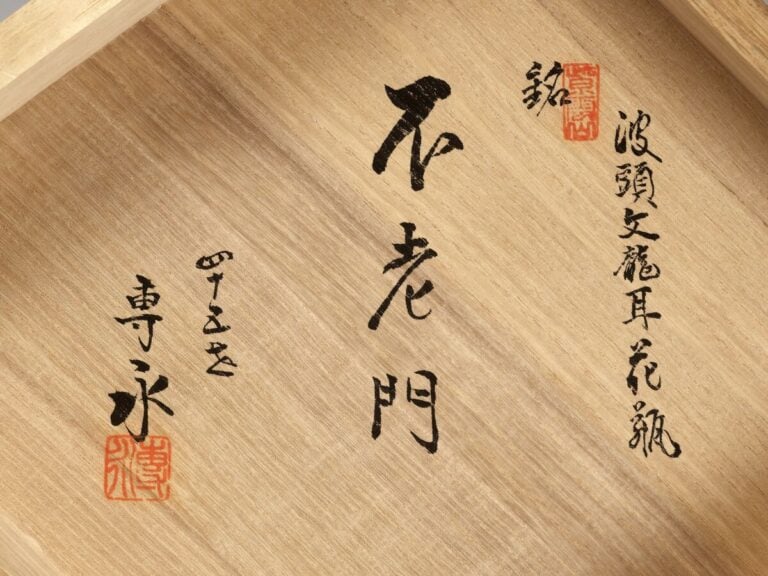 波頭文龍耳花瓶
銘
不老門
四十五世
専永
専永